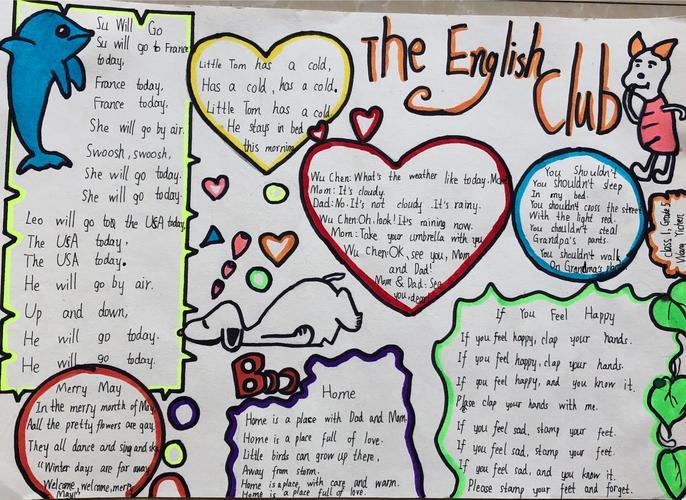 The English Club
Su Will Go
Su will go to France
today,
France today,
France today.
She will go by air.
Swoosh, swoosh,
She will go today.
She will go today.
Leo will go to the USA today,
The USA today,
The USA today.
He will go by air.
Up and down,
He will go today.
He will go today.
Little Tom has a cold,
Has a cold, has a cold.
Little Tom has a cold
He stays in bed
this morning
Wu Chen: What's the weather like today, Mom
Mom: It's cloudy.
Dad: No. It's not cloudy. It's rainy.
Wu Chen: Oh, look! It's raining now.
Mom: Take your umbrella with you
Wu Chen: OK, see you, Mom
and Dad!
Mom & Dad: See
you, dear!
You Shouldn't
You shouldn't sleep
In my bed
You shouldn't cross the street
With the light red.
You shouldn't steal
Grandpa's pants.
You shouldn't walk
On Grandma's
Class 1, Grade 5
Merry May
In the merry month of May
All the pretty flowers are gay,
They all dance and sing and
"Winter days are far away
Welcome, welcome, merry
May"
Boo
Home
Home is a place with Dad and Mom
Home is a place full of love.
Little birds can grow up there,
Away from storm.
Home is a place, with care and warm.
Home is a place full of love.
If You Feel Happy
If you feel happy, clap your hands.
If you feel happy, clap your hands.
If you feel happy, and you know it.
Please clap your hands with me.
If you feel sad, stamp your feet.
If you feel sad, stamp your feet.
If you feel sad, and you know it.
Please stamp your feet and forget.